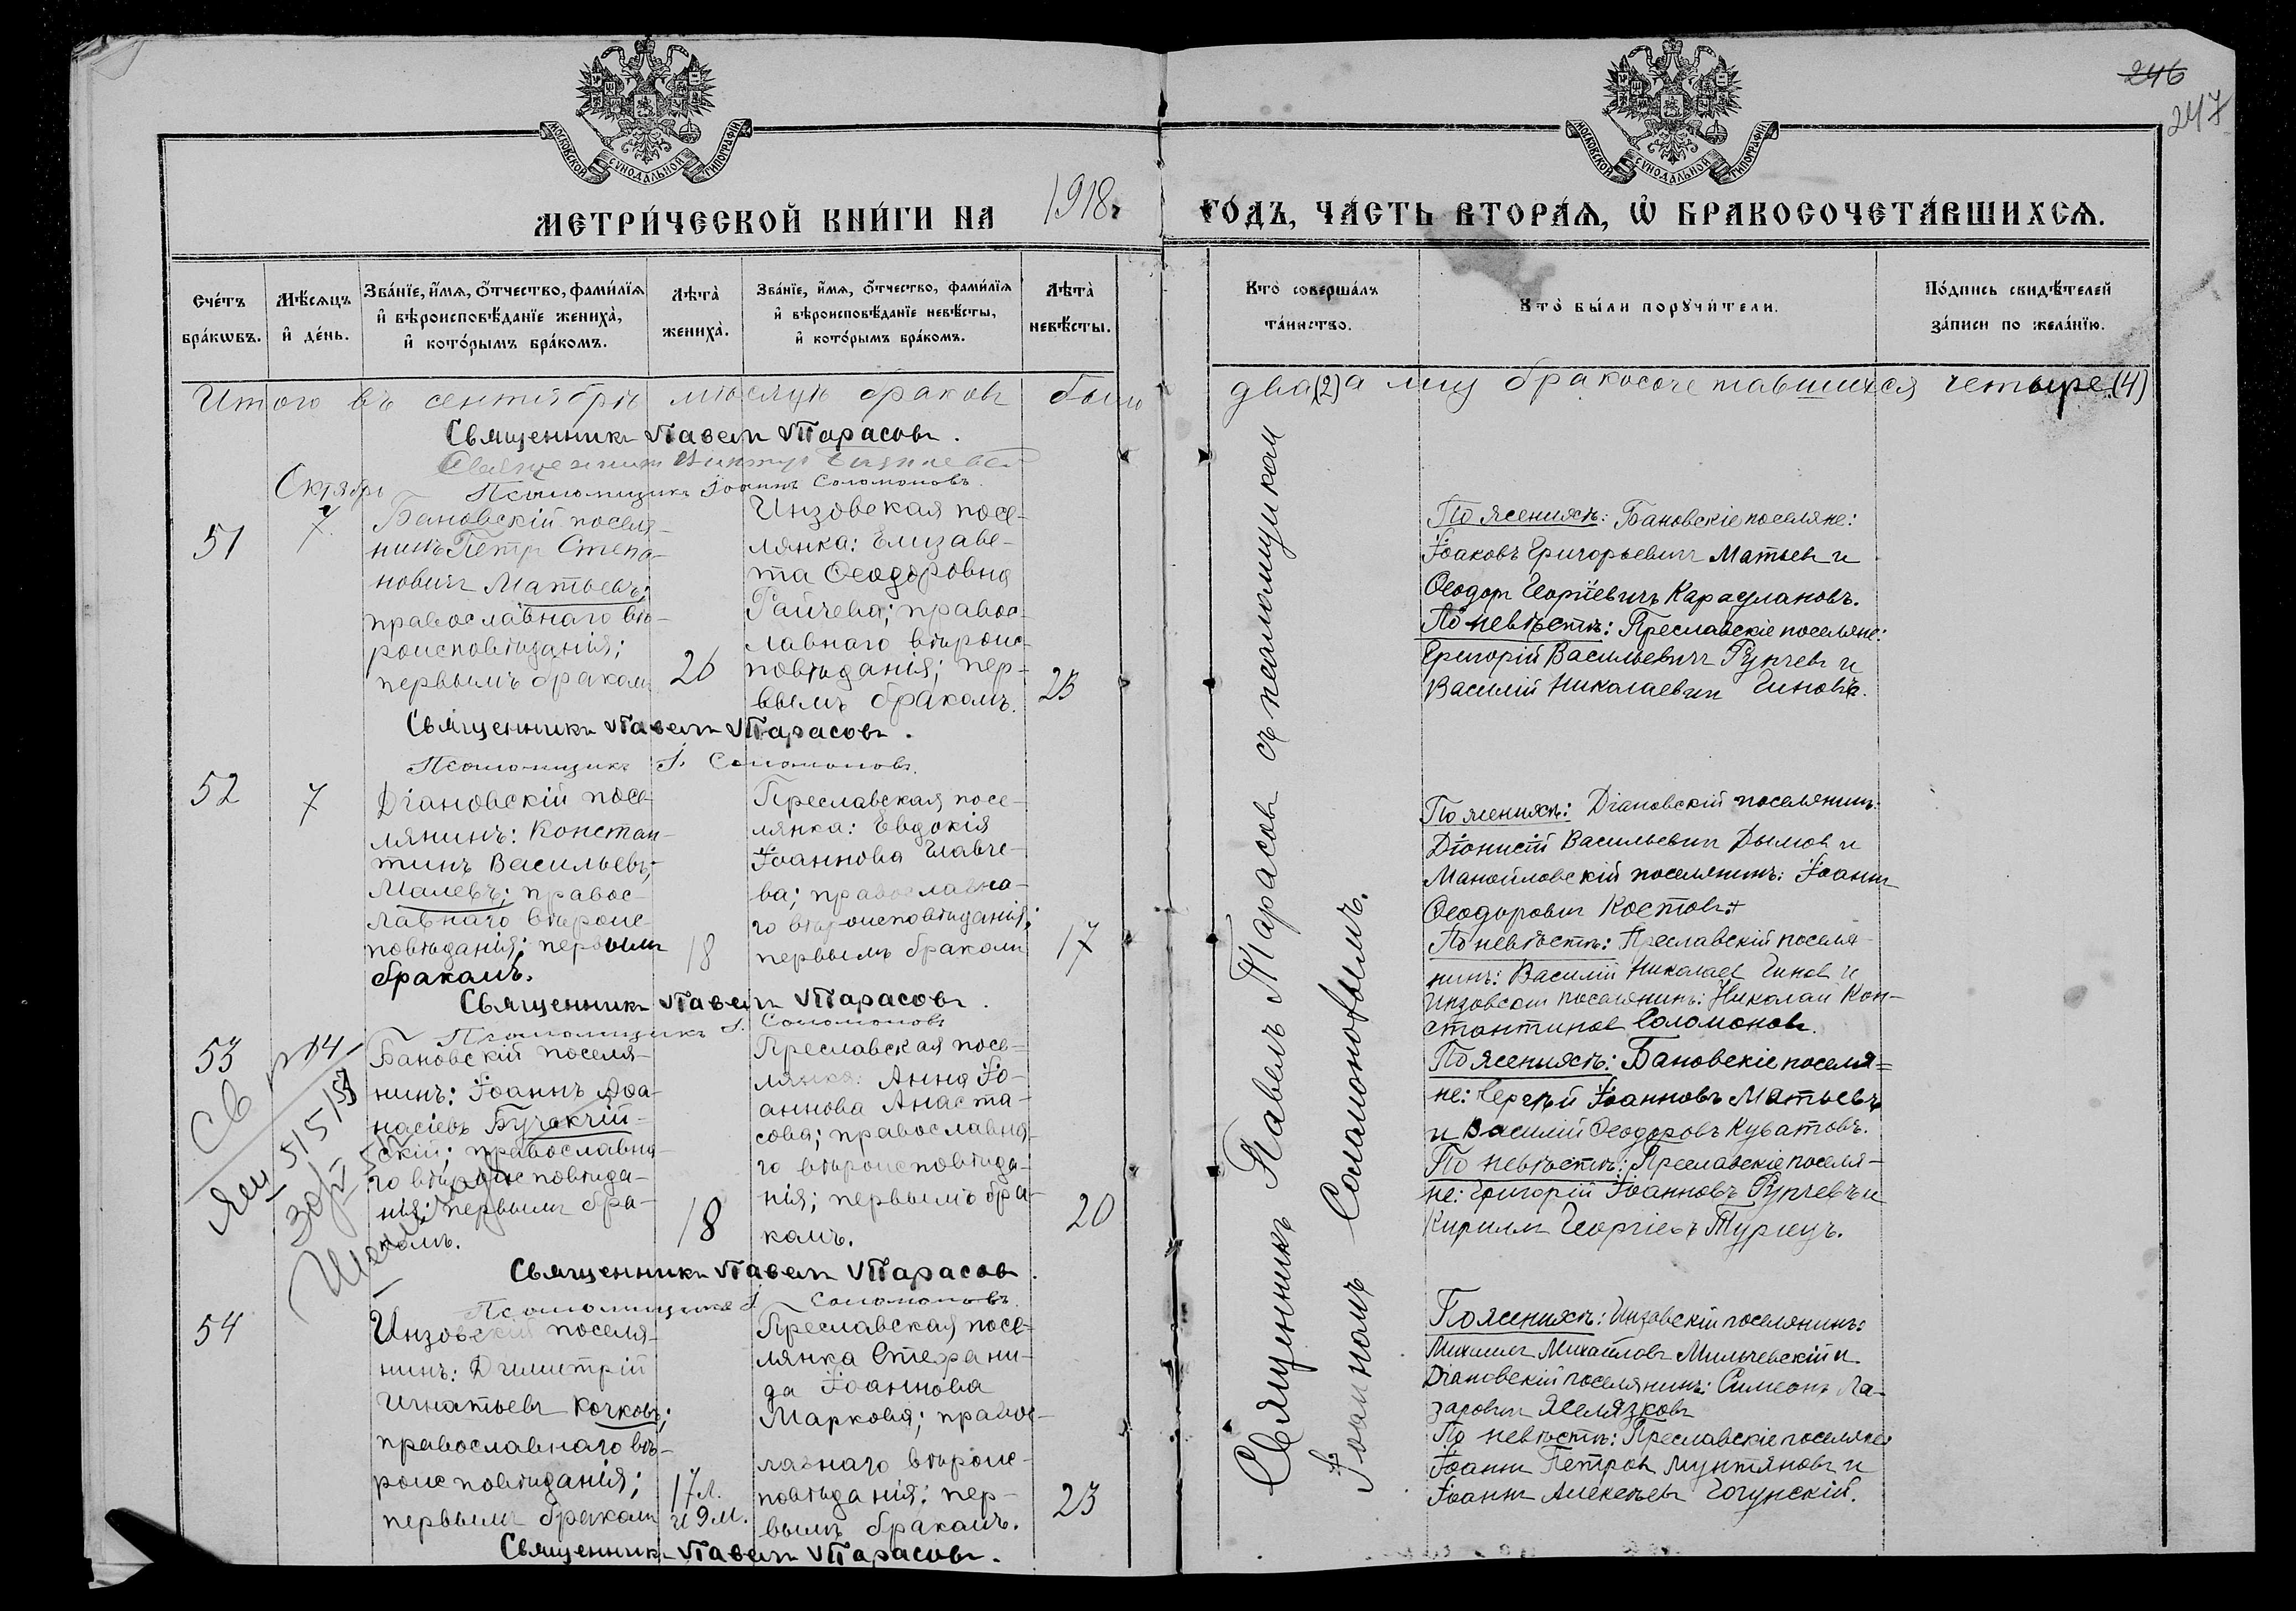 246
247
МОСКОВСКОЙ СѴНОДАЛЬНОЙ ТИПОГРАФІИ
МОСКОВСКОЙ СѴНОДАЛЬНОЙ ТИПОГРАФІИ
МЕТРИ́ЧЕСКОЙ КНИ́ГИ НА 1918 г
ГО́ДЪ, ЧА́СТЬ ВТОРА́Ѧ, Ѽ БРАКОСОЧЕТА́ВШИХСѦ.
Сче́тъ
бра́кѡвъ.
Мѣ́сѧцъ
и҆ де́нь.
Зва́нїе, и҆́мѧ, ѻ҆́тчество, фами́лїѧ
и҆ вѣроисповѣ́данїе жениха̀,
и҆ кото́рымъ бра́комъ.
Лѣта̀
жениха̀.
Зва́нїе, и҆́мѧ, ѻ҆́тчество, фами́лїѧ
и҆ вѣроисповѣ́данїе невѣ́сты,
и҆ кото́рымъ бра́комъ.
Лѣта̀
невѣ́сты.
Кто̀ соверша́лъ
та́инство.
Кто̀ бы́ли порꙋчи́тели.
По́дпись свидѣ́телей
за́писи по жела́нїю.
Итого въ сентябрѣ мѣсяцѣ браковъ было два (2) а лиц бракосочетавшихся четыре (4)
Священникъ Павелъ Тарасовъ.
Псаломщикъ Іоаннъ Соломоновъ.
Октябрь
51
7
Бановскій поселя-
нинъ Петръ Степа-
новичъ Матьевъ;
православнаго вѣ-
роисповѣданія;
первымъ бракомъ
26
Инзовская посе-
лянка: Елизаве-
та Ѳеодоровна
Райчева; правос-
лавнаго вѣроис-
повѣданія; пер-
вымъ бракомъ.
23
По женихѣ: Бановскіе поселяне:
Іоаковъ Григорьевичъ Матьевъ и
Ѳеодоръ Георгіевичъ Карауланов.
По невѣстѣ: Преславскіе поселяне:
Григорій Васильевичъ Рупчевъ и
Василій Николаевичъ Гиновъ.
Священникъ Павелъ Тарасовъ.
Псаломщикъ І. Соломоновъ.
52
7
Діановскій посе-
лянинъ: Констан-
тинъ Васильевъ
Малевъ; правос-
лавнаго вѣроис-
повѣданія; первымъ
бракомъ.
18
Преславская посе-
лянка: Евдокія
Іоаннова Главче-
ва; православна-
го вѣроисповѣданія;
первымъ бракомъ
17
По женихѣ: Діановскій поселянинъ:
Діонисій Васильевич Дымов и
Манойловскій поселянинъ: Іоаннъ
Ѳеодорович Костовъ +
По невѣстѣ: Преславскій поселя-
нинъ: Василій Николаев Гинов и
Инзовской поселянинъ: Николай Кон-
стантинов Соломоновъ.
Священникъ Павелъ Тарасовъ.
Псаломщикъ І. Соломоновъ
53
14
Бановскій поселя-
нинъ: Іоаннъ Аѳа-
насіевъ Бучакчій-
скій; православна-
го вѣроисповѣда-
нія; первымъ бра-
комъ.
18
Преславская посе-
лянка: Анна Іо-
аннова Анаста-
сова; православна-
го вѣроисповѣда-
нія; первымъ бра-
комъ.
20
По женихѣ: Бановскіе поселя-
не: Сергѣй Іоанновъ Матьевъ
и Василій Ѳеодоровъ Куватовъ.
По невѣстѣ: Преславскіе поселя-
не: Григорій Іоанновъ Рупчевъ и
Кириллъ Георгіевъ Турнуъ.
Священникъ Павелъ Тарасов
Псаломщикъ І. Соломоновъ.
54
Инзовскій поселя-
нинъ: Димитрій
Игнатьевъ Кочковъ;
православнаго вѣ-
роисповѣданія;
первымъ бракомъ
17 л.
и 9 м.
Преславская посе-
лянка Стефани-
да Іоаннова
Маркова; правос-
лавнаго вѣроис-
повѣданія; пер-
вымъ бракомъ.
23
По женихѣ: Инзовскій поселянинъ:
Михаилъ Михайловъ Мильчевскій и
Діановскій поселянинъ: Симеонъ Ла-
заровичъ Желязковъ
По невѣстѣ: Преславскіе поселяне:
Іоаннъ Петров Мунтяновъ и
Іоаннъ Алексѣевъ Гогунскій.
Священникъ Павелъ Тарасовъ.
Священникъ Павелъ Тарасовъ съ псаломщиком
Іоанномъ Соломоновымъ.